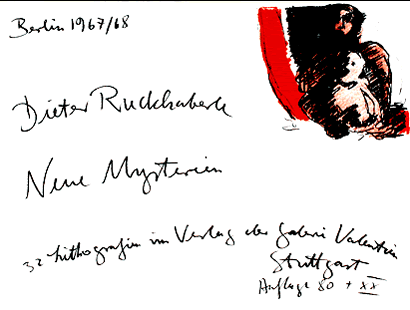 Berlin 1967/68
Dieter Ruckhaberle
Neue Mysterien
32 Lithografien im Verlag der Galerie Valentien
Stuttgart
Auflage 80 + XX